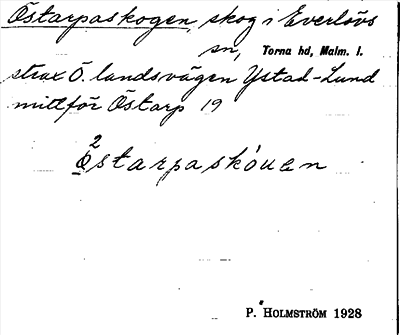 Östarpaskogen, skog i Everlövs
sn, Torna hd, Malm. l.
strax Ö. landsvägen Ystad-Lund
mittför Östarp 19
2
östarpaskóuen
P. HOLMSTRÖM 1928